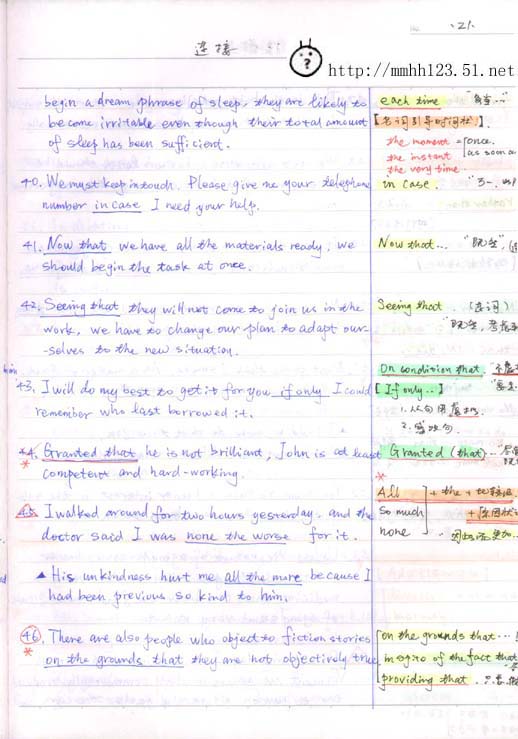 ·21·
连接
?
http://mmhh123.51.net
begin a dream phrase of sleep, they are likely to
become irritable even though their total amount
of sleep has been sufficient.
40. We must keep in touch. Please give me your telephone
number in case I need your help.
41. Now that we have all the materials ready, we
should begin the task at once.
42. Seeing that they will not come to join us in the
work, we have to change our plan to adapt our-
-selves to the new situation.
43. I will do my best to get it for you if only I could
remember who last borrowed it.
44. Granted that he is not brilliant, John is at least
competent and hard-working.
45. I walked around for two hours yesterday, and the
doctor said I was none the worse for it.
▲ His unkindness hurt me all the more because I
had been previous so kind to him.
46. There are also people who object to fiction stories
on the grounds that they are not objectively true
each time "每当…"
【名词引导时间状】
the moment = once
the instant as soon a
the very time
in case.
Now that… "既然"
Seeing that . (连词)
"既然,
On condition that.
【If only…】
1. 从句用虚拟
2.
Granted (that)
All + the + 比较级
so much + 原因状
none
on the grounds that…
in spite of the fact that
providing that